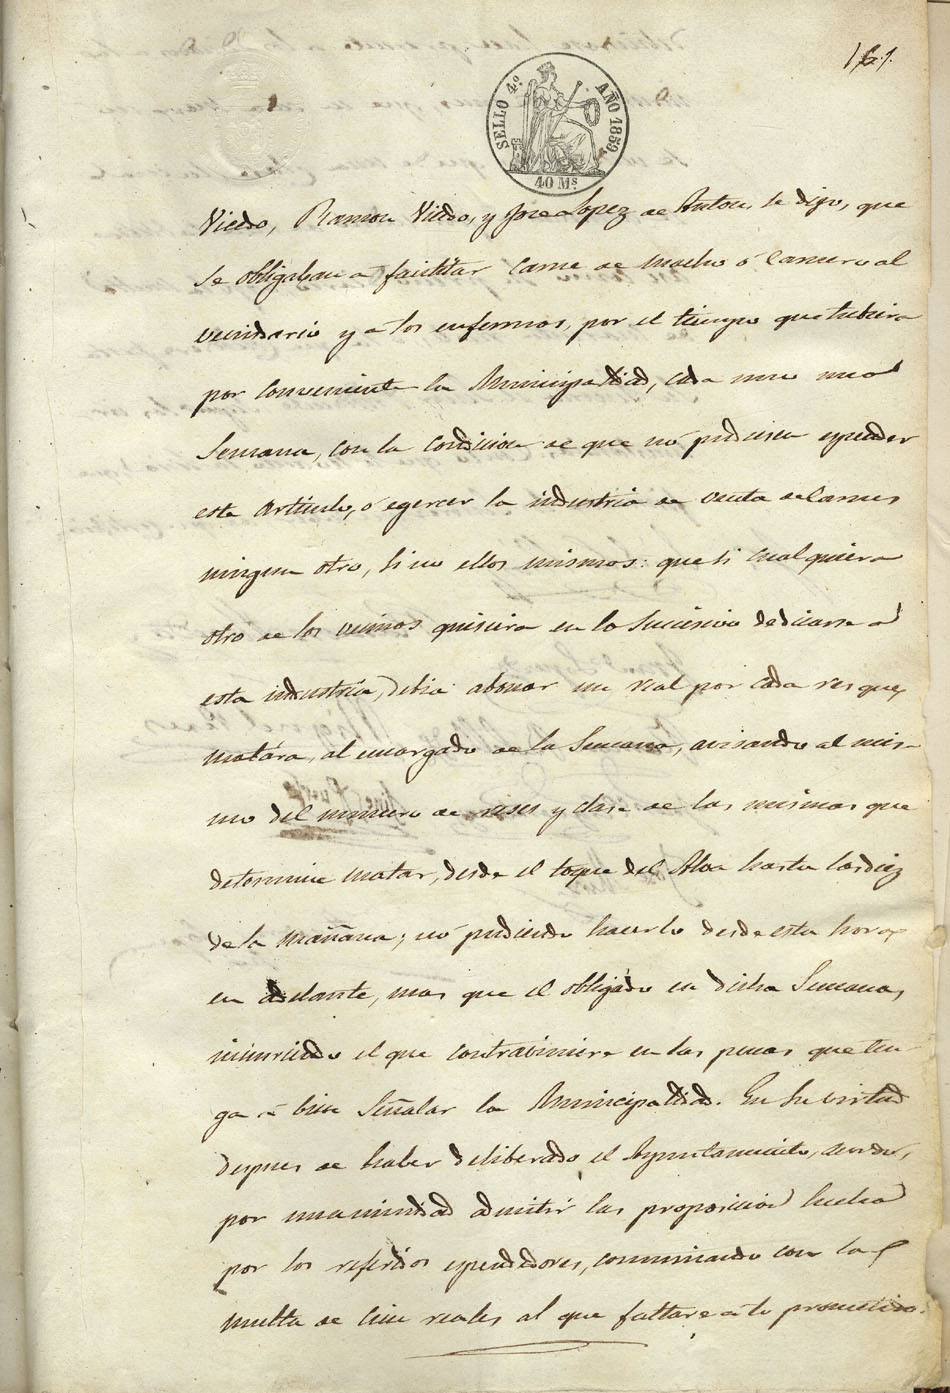 161.
SELLO 4º AÑO 1859.
40 Ms.
Viedo, Ramon Viedo, y Jose Lopez de Anton, se dijo, que
se obligaban a facilitar carne de macho ó carnero al
vecindario y a los enfermos, por el tiempo que tubiera
por conveniente la Municipalidad, cada uno una
semana, con la condicion de que no pudiera espender
este articulo, ó egercer la industria de venta de carnes
ningun otro, sino ellos mismos: que si cualquiera
otro de los vecinos quisiera en lo sucesivo dedicarse a
esta industria, debia abonar un real por cada res que
matára, al encargado de la semana, avisando al mis-
mo del numero de reses y clase de las mismas que
determine matar, desde el toque del Alva hasta las diez
de la mañana; no pudiendo hacerlo desde esta hora
en adelante, mas que el obligado en dicha semana,
incurriendo el que contraviniere en las penas que ten-
ga a bien señalar la Municipalidad. En su virtud
despues de haber deliberado el Ayuntamiento, acordó,
por unanimidad admitir las proposicion hecha
por los referidos espendedores, conminando con la
multa de cien reales al que faltare a lo prometido.